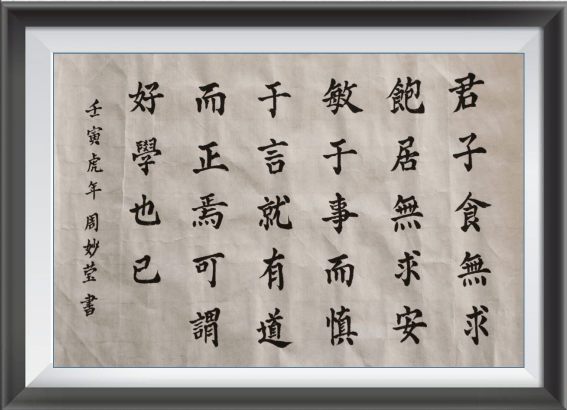 君子食無求
飽居無求安
敏于事而慎
于言就有道
而正焉可謂
好學也已
壬寅虎年周妙莹書